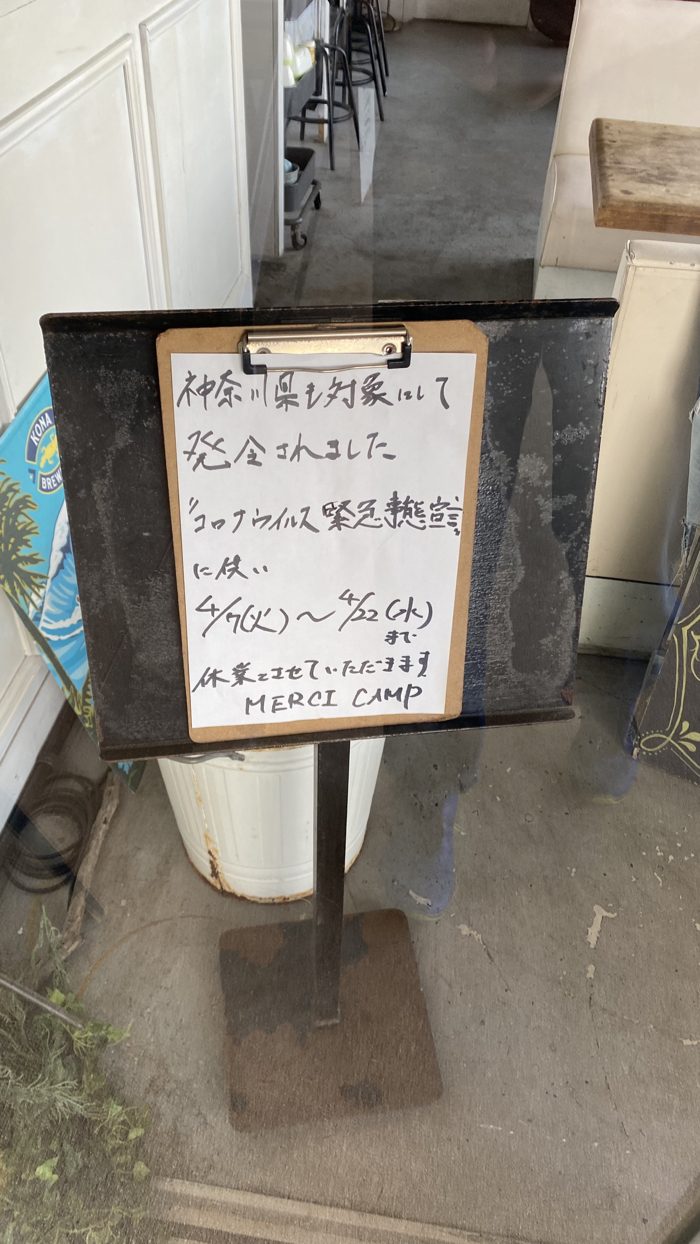 神奈川県も対象にして
発令されました
"コロナウイルス緊急事態宣言"
に伴い
4/7(火)〜4/22(水)
まで
休業とさせていただきます
MERCI CAMP
KONA
BREW